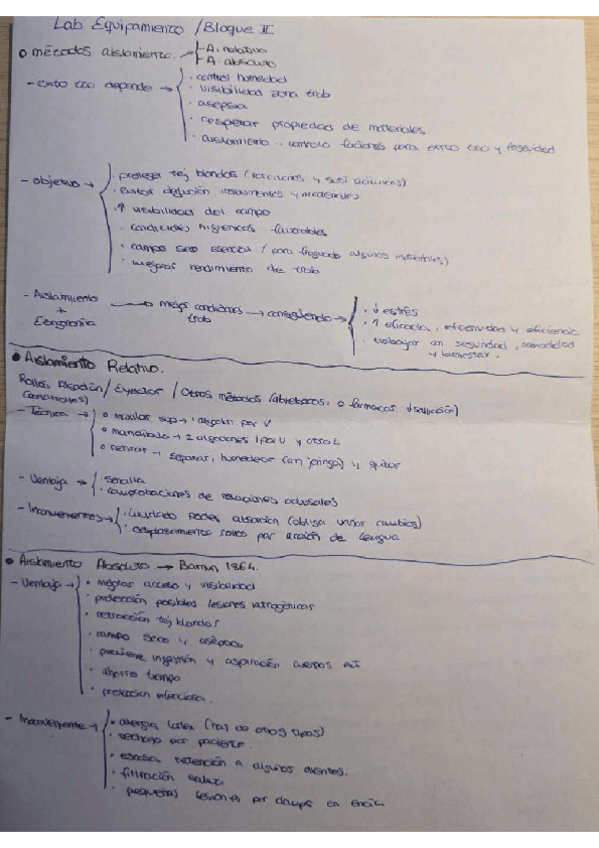 Lab Equipamiento / Bloque II
métodos aislamiento. - A. relativo
- A. absoluto
- éxito tto depende → · control humedad
· visibilidad zona trab
· asepsia
· respetar propiedades de materiales
· aislamiento .. controla factores para éxito tto y seguridad
- objetivo → · proteger tej blandos
· evitar deglución instrumentos y materiales
· ↑ visibilidad del campo
· condiciones higiénicas favorables
· campo seco esencial (para fraguado algunos materiales)
· mejorar rendimiento de trab
- Aislamiento + Ergonomía → mejor condiciones trab → consiguiendo → · ↓ estrés
· ↑ eficacia, efectividad y eficiencia
· trabajar con seguridad, comodidad y bienestar.
Aislamiento Relativo.
Rollos Algodón / Eyector / Otros métodos (abrebocas, o fármacos ↓ salivación)
- Técnica → maxilar sup → 1 algodón por V
mandíbula → 2 algodones 1 por V y otro L
retirar → separar, humedecer (con jeringa) y quitar
- Ventaja → · sencilla
· comprobaciones de relaciones oclusales
- Inconvenientes → · Limitado poder absorción (obliga varios cambios)
· desplazamiento rollos por acción de lengua
Aislamiento Absoluto → Barnum 1864.
- Ventaja → · mejorar acceso y visibilidad
· protección posibles lesiones iatrogénicas
· retracción tej blandos
· campo seco y aséptico
· previene ingestión y aspiración cuerpos
· ahorro tiempo
· protección infecciosa.
- Inconveniente → · alergia látex (hay de otros tipos)
· rechazo por paciente
· escasa retención a algunos dientes.
· filtración saliva
· pequeñas lesiones por clamps en encía